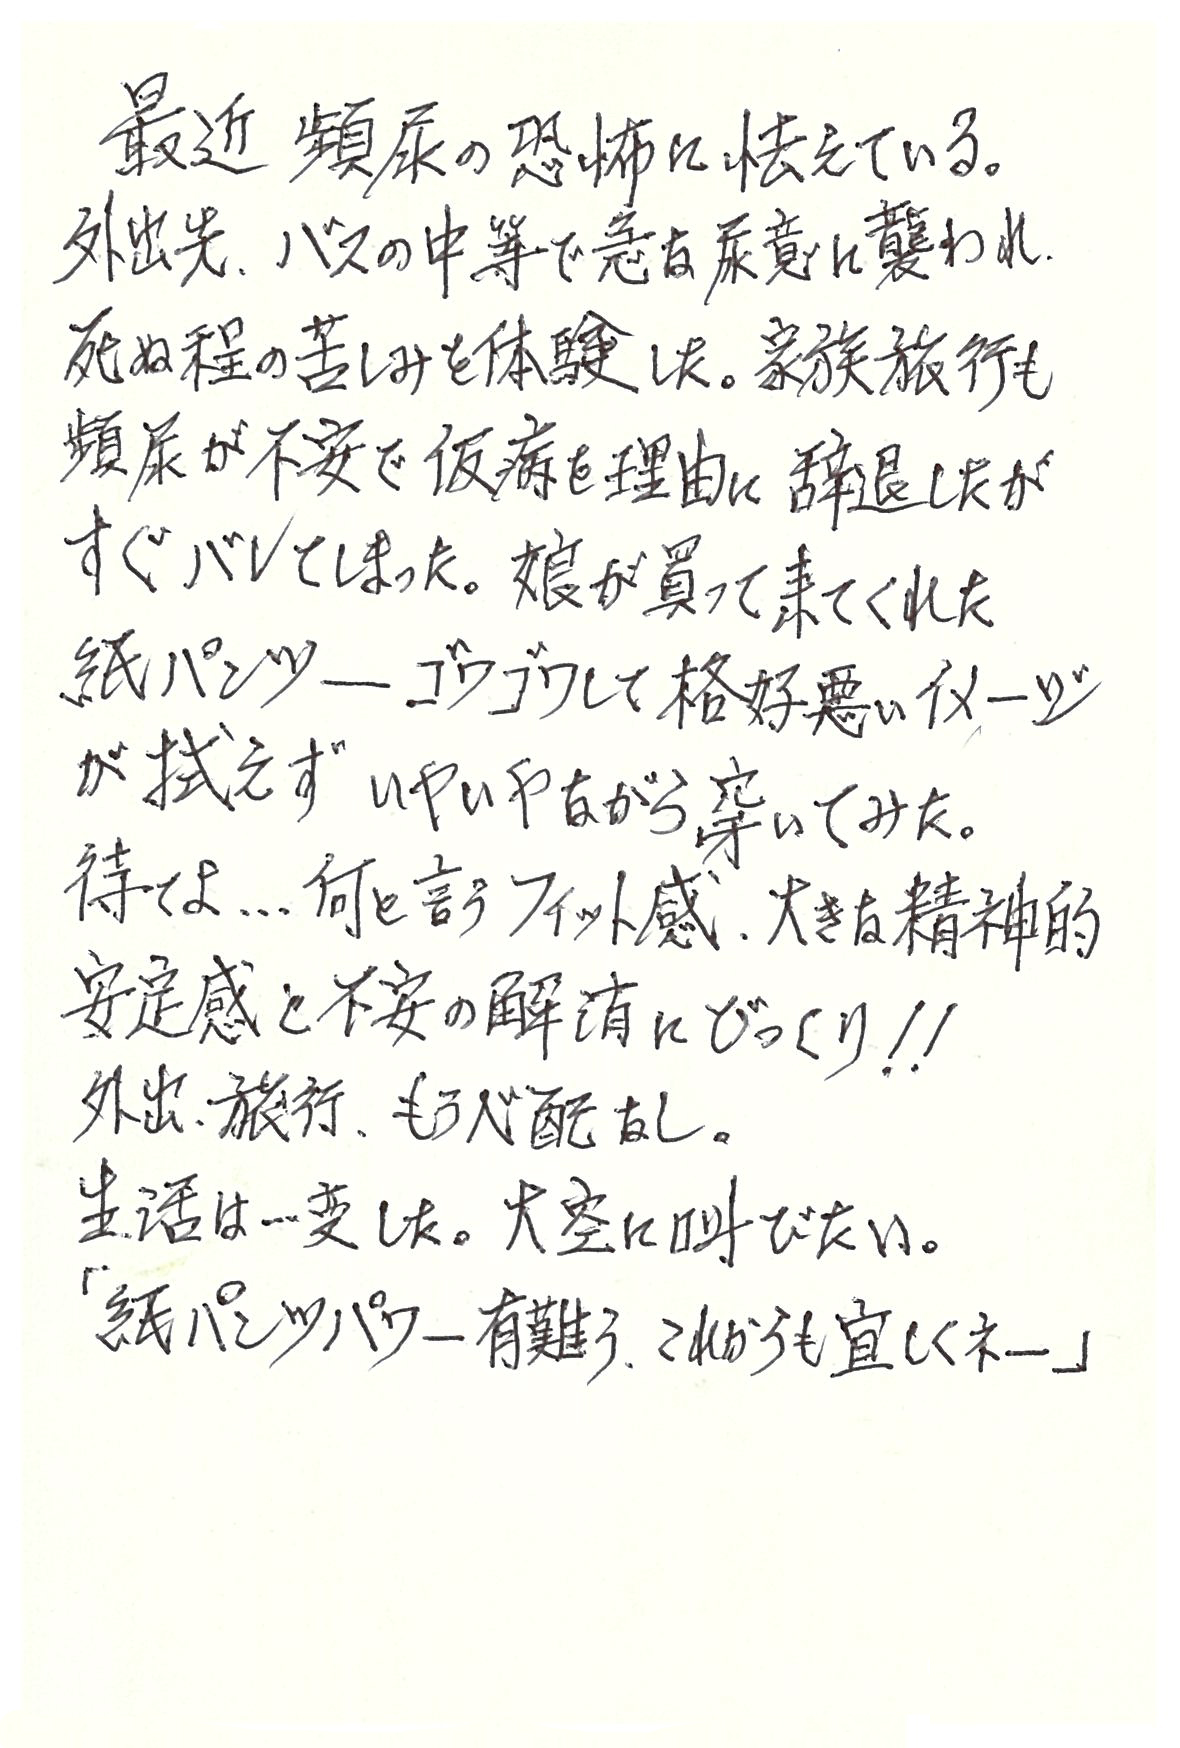 最近 頻尿の恐怖に怯えている。
外出先、バスの中等で急な尿意に襲われ、
死ぬ程の苦しみを体験した。家族旅行も
頻尿が不安で仮病を理由に辞退したが
すぐバレてしまった。娘が買って来てくれた
紙パンツ―ゴワゴワして格好悪いイメージ
が拭えず いやいやながら穿いてみた。
待てよ…何と言うフィット感、大きな精神的
安定感と不安の解消にびっくり!!
外出、旅行、もう心配なし。
生活は一変した。大空に叫びたい。
「紙パンツパワー有難う、これからも宜しくネー」